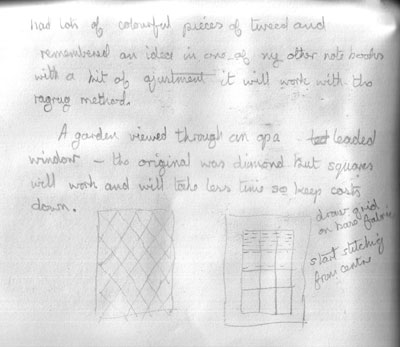 had lots of colourful pieces of tweed and
remembered an idea in one of my other note books
with a bit of ajustment it will work with the
ragrug method.
A garden viewed through an opa leaded
window – the original was dimond but squares
will work and will take less time so keep costs
down.
draw grid
on base fabric
start stitching
from centre